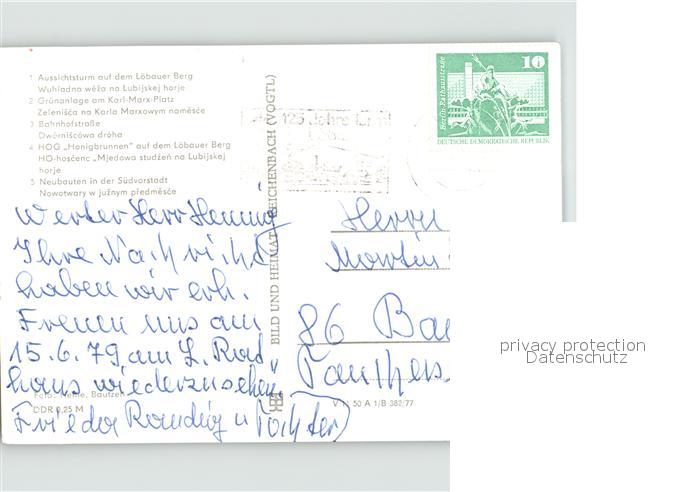 1 Aussichtsturm auf dem Löbauer Berg
Wuhladna wěža na Lubijskej horje
2 Grünanlage am Karl-Marx-Platz
Zelenišćo na Karla Marxowym naměsće
3 Bahnhofstraße
Dwórnišćowa dróha
4 HOG „Honigbrunnen" auf dem Löbauer Berg
HO-hosćenc „Mjedowa studźeń na Lubijskej
horje
5 Neubauten in der Südvorstadt
Nowotwary w južnym předměsće
Werter Herr Hennig
Ihre Nachricht
haben wir erh.
Freuen uns am
15.6.79 am L. Rat
haus wiederzusehen,
Frieda u Tochter
Foto: Bautzen
DDR 0,25 M
BILD UND HEIMAT REICHENBACH (VOGTL)
125 Jahre
10
Berlin-Rathausstraße
DEUTSCHE DEMOKRATISCHE REPUBLIK
Herrn
Martin
86 Bau
V 11 50 A 1/B 382/77
privacy protection
Datenschutz